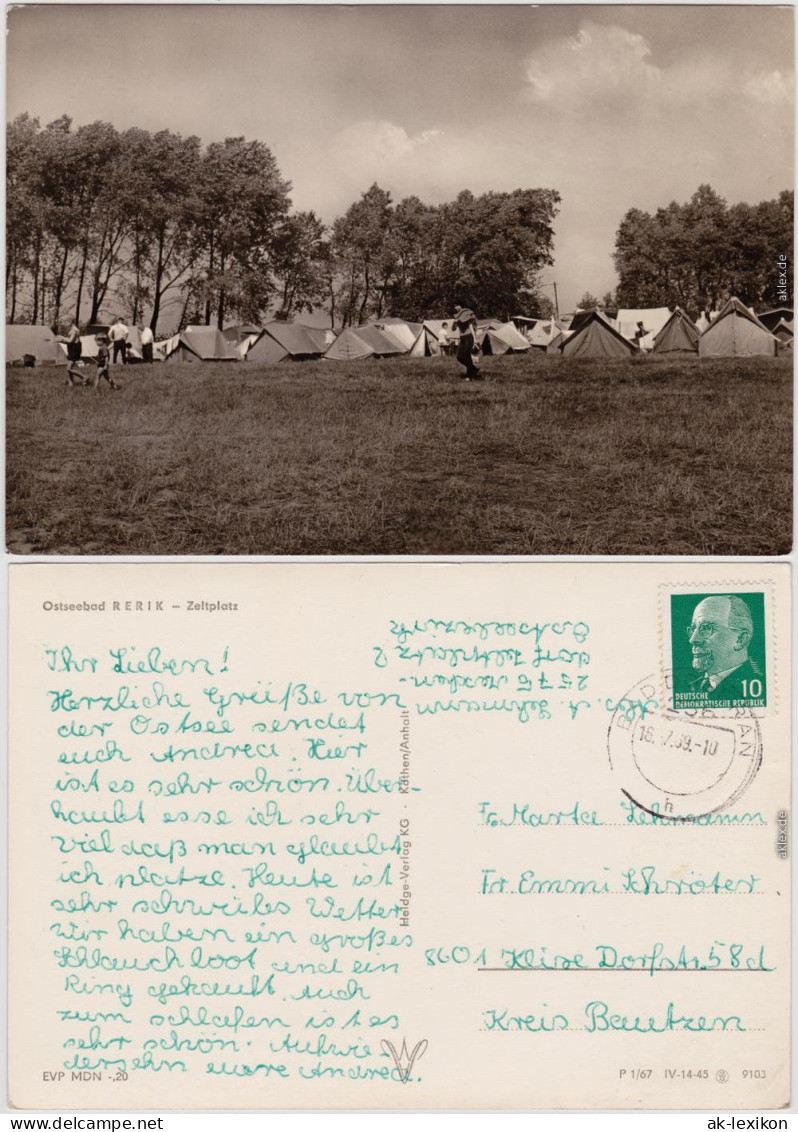 aklex.de
Ostseebad RERIK – Zeltplatz
Ihr Lieben!
Herzliche Grüße von
der Ostsee sendet
euch Andrea. Hier
ist es sehr schön. Über-
haubt esse ich sehr
viel daß man glaubt
ich platze. Heute ist
sehr schwüles Wetter
Wir haben ein großes
Schlauchboot und ein
Ring gekauft. Auch
zum schlafen ist es
sehr schön. Aufwie-
dersehn eure Andrea.
EVP MDN -,20
Heldge-Verlag KG · Köthen/Anhalt
A. Lehmann
2575
dorf Zeltplatz 2
Ostseebezirk
10
DEUTSCHE
DEMOKRATISCHE REPUBLIK
16. 7.69.-10
h
Fr. Marta Lehmann
Fr Emmi Schröter
8601 Klixe Dorfstr. 58d
Kreis Bautzen
P 1/67 IV-14-45 9103
aklex.de
ak-lexikon.com